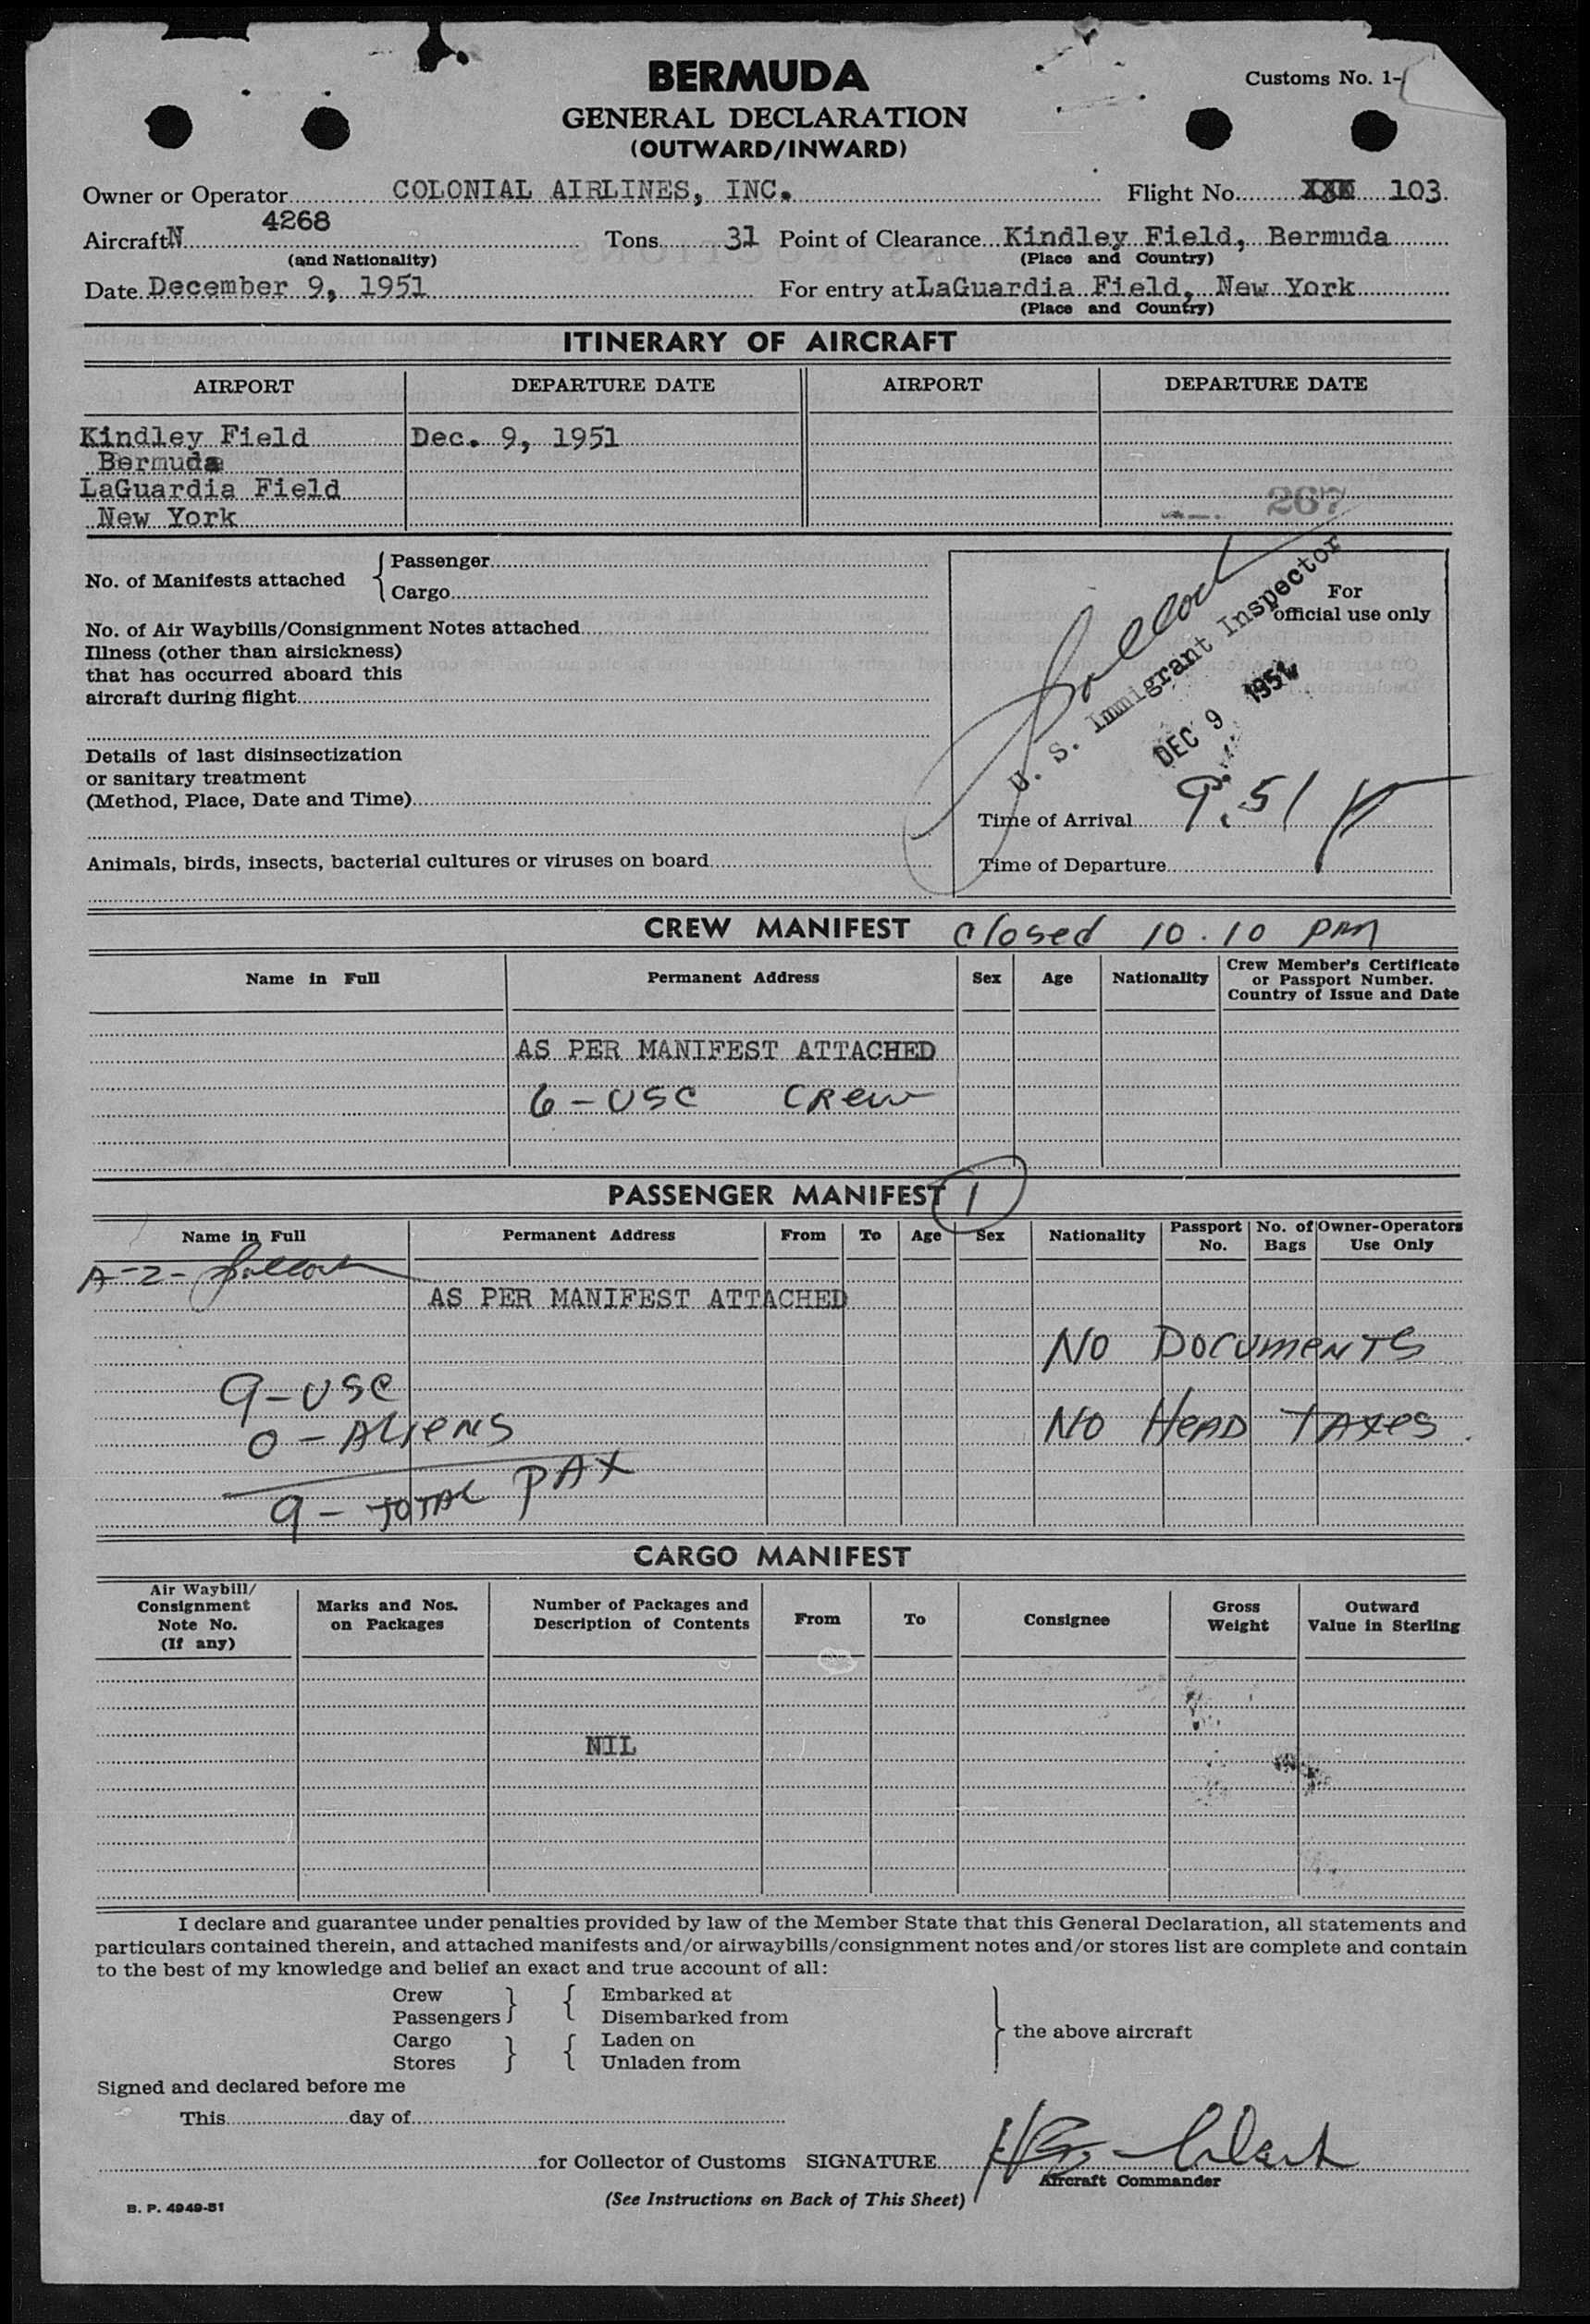 BERMUDA
Customs No. 1-
GENERAL DECLARATION
(OUTWARD/INWARD)
Owner or Operator COLONIAL AIRLINES, INC. Flight No. 103
Aircraft N 4268 Tons 31 Point of Clearance Kindley Field, Bermuda
(and Nationality) (Place and Country)
Date December 9, 1951 For entry at LaGuardia Field, New York
(Place and Country)
ITINERARY OF AIRCRAFT
AIRPORT DEPARTURE DATE AIRPORT DEPARTURE DATE
Kindley Field Dec. 9, 1951
Bermuda
LaGuardia Field
New York
267
No. of Manifests attached { Passenger
Cargo
No. of Air Waybills/Consignment Notes attached
Illness (other than airsickness)
that has occurred aboard this
aircraft during flight
Details of last disinsectization
or sanitary treatment
(Method, Place, Date and Time)
Animals, birds, insects, bacterial cultures or viruses on board
For
official use only
U. S. Immigrant Inspector
DEC 9 1951
Time of Arrival 9.51
Time of Departure
CREW MANIFEST closed 10.10 PM
Name in Full Permanent Address Sex Age Nationality Crew Member's Certificate
or Passport Number.
Country of Issue and Date
AS PER MANIFEST ATTACHED
6 - USC CREW
PASSENGER MANIFEST 1
Name in Full Permanent Address From To Age Sex Nationality Passport No. No. of Bags Owner-Operators Use Only
A-2-
AS PER MANIFEST ATTACHED
NO DOCUMENTS
9 - USC
0 - ALIENS
NO HEAD TAXES.
9 - TOTAL PAX
CARGO MANIFEST
Air Waybill/
Consignment
Note No.
(If any)
Marks and Nos.
on Packages
Number of Packages and
Description of Contents
From To Consignee
Gross
Weight
Outward
Value in Sterling
NIL
I declare and guarantee under penalties provided by law of the Member State that this General Declaration, all statements and
particulars contained therein, and attached manifests and/or airwaybills/consignment notes and/or stores list are complete and contain
to the best of my knowledge and belief an exact and true account of all:
Crew } { Embarked at
Passengers Disembarked from
Cargo } { Laden on
Stores Unladen from
} the above aircraft
Signed and declared before me
This day of
for Collector of Customs SIGNATURE
Aircraft Commander
B. P. 4949-51
(See Instructions on Back of This Sheet)